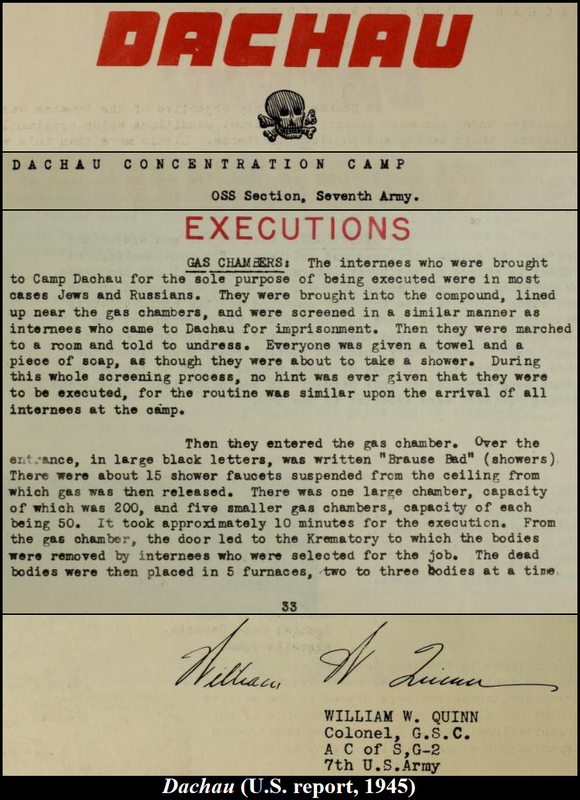 DACHAU
DACHAU CONCENTRATION CAMP
OSS Section, Seventh Army.
EXECUTIONS
GAS CHAMBERS: The internees who were brought
to Camp Dachau for the sole purpose of being executed were in most
cases Jews and Russians. They were brought into the compound, lined
up near the gas chambers, and were screened in a similar manner as
internees who came to Dachau for imprisonment. Then they were marched
to a room and told to undress. Everyone was given a towel and a
piece of soap, as though they were about to take a shower. During
this whole screening process, no hint was ever given that they were
to be executed, for the routine was similar upon the arrival of all
internees at the camp.
Then they entered the gas chamber. Over the
entrance, in large black letters, was written "Brause Bad" (showers).
There were about 15 shower faucets suspended from the ceiling from
which gas was then released. There was one large chamber, capacity
of which was 200, and five smaller gas chambers, capacity of each
being 50. It took approximately 10 minutes for the execution. From
the gas chamber, the door led to the Krematory to which the bodies
were removed by internees who were selected for the job. The dead
bodies were then placed in 5 furnaces, two to three bodies at a time.
33
William W Quinn
WILLIAM W. QUINN
Colonel, G.S.C.
A C of S,G-2
7th U.S.Army
Dachau (U.S. report, 1945)